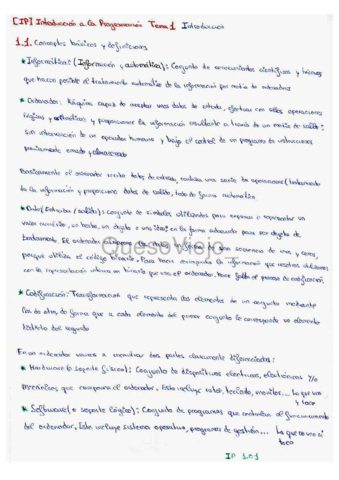 [IP] Introducción a la Programación Tema 1 Introducción
1.1. Conceptos básicos y definiciones
* Informática: (Información y automática): Conjunto de conocimientos científicos y técnicos
que hacen posible el tratamiento automático de la información por medio de ordenadores
* Ordenador: Máquina capaz de aceptar unos datos de entrada, efectuar con ellos operaciones
lógicas y aritméticas y proporcionar la información resultante a través de un medio de salida:
sin intervención de un operador humano y bajo el control de un programa de instrucciones
previamente creado y almacenado
Básicamente el ordenador recibe datos de entrada, realiza una serie de operaciones (tratamiento
de la información y proporciona datos de salida, todo de forma automática.
* Dato (Entrada / salida): Conjunto de símbolos utilizados para expresar o representar un
valor numérico, un hecho, un objeto o una idea; en la forma adecuada para ser objeto de
tratamiento. El ordenador los datos en forma de una secuencia de unos y ceros,
porque utiliza el código binario. Para hacer la información que nosotros utilizamos
con la representación interna en binario que usa el ordenador, hace falta el proceso de codificación.
QuesoViejo
* Codificación: Transformación que representa los elementos de un conjunto mediante
los de otro, de forma que a cada elemento del primer conjunto le corresponde un elemento
distinto del segundo
En un ordenador vamos a encontrar dos partes claramente diferenciadas:
* Hardware (o soporte físico): Conjunto de dispositivos electricos, electrónicos y/o
mecánicos que componen el ordenador. Esto incluye ratón, teclado, monitor... Lo que veo
y toco
* Software (o soporte lógico): Conjunto de programas que controlan el funcionamiento
del ordenador. Esto incluye sistema operativo, programas de gestión... Lo que no veo ni
toco
IP 1.0.1